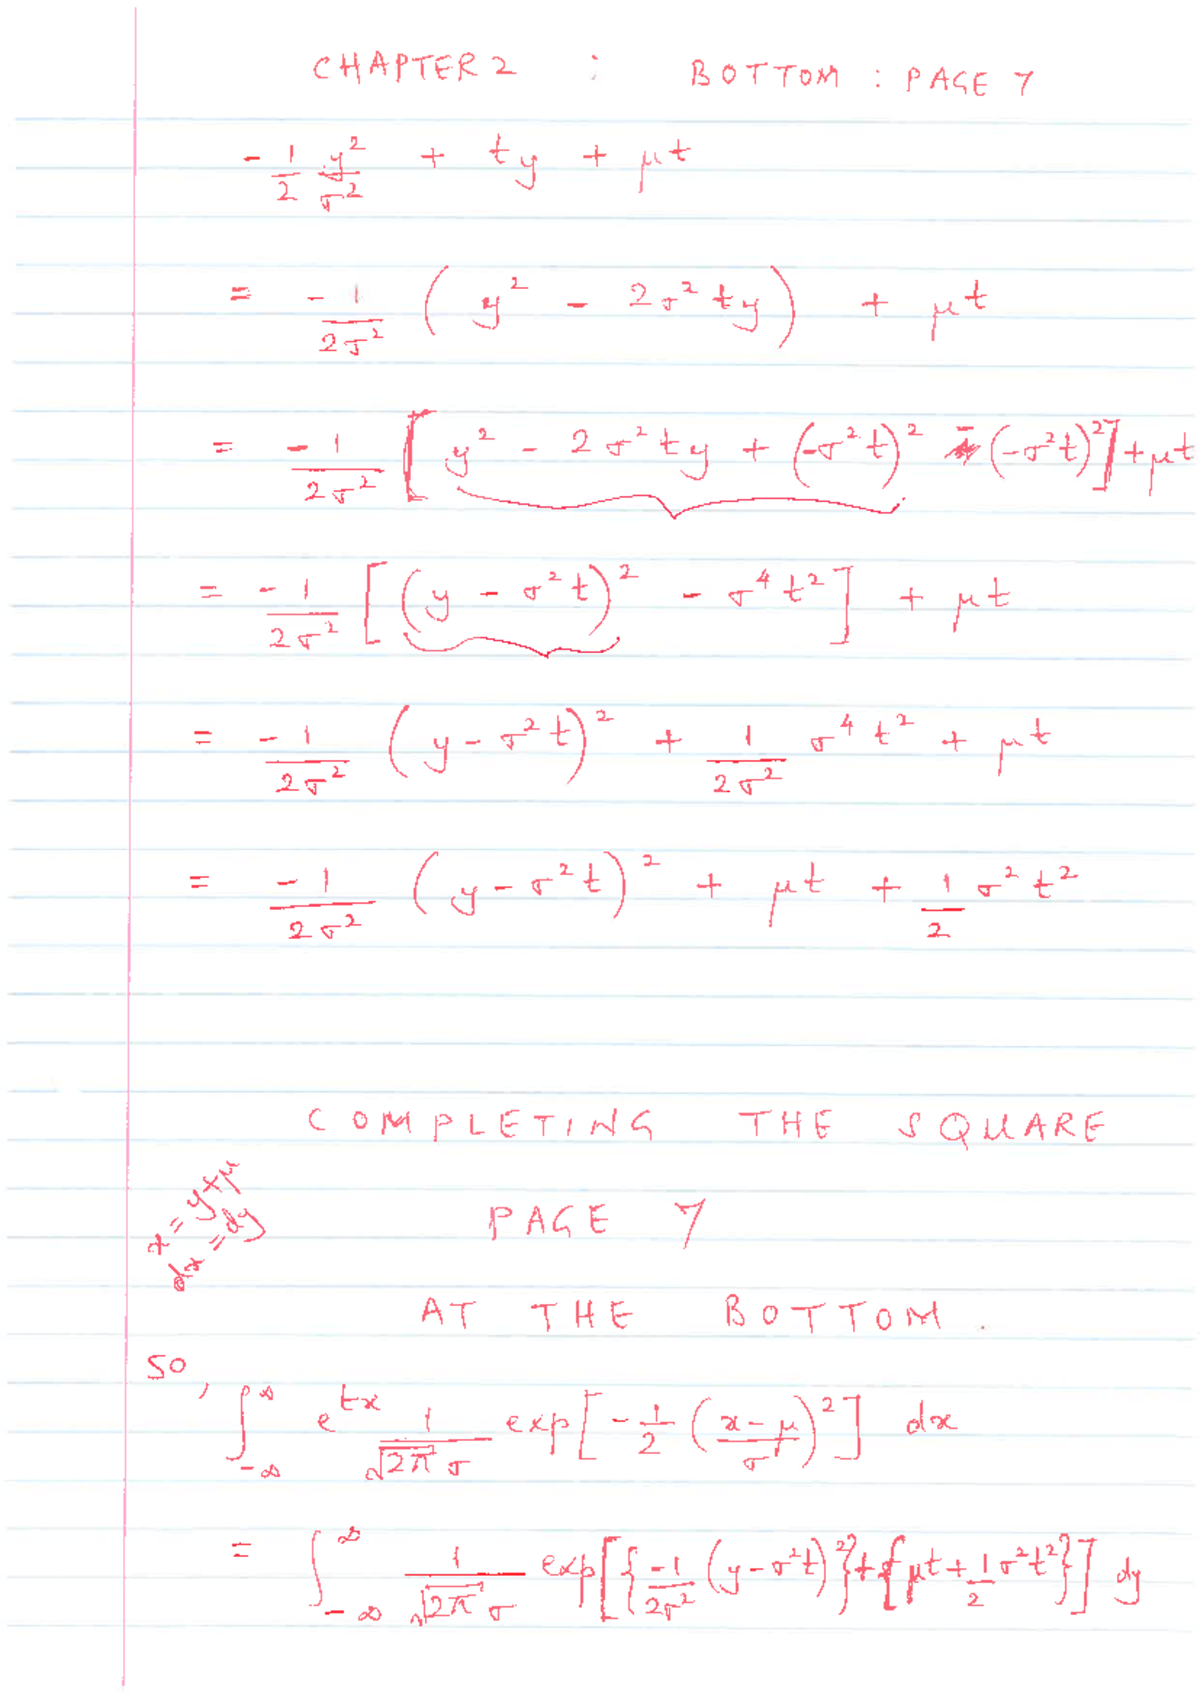 CHAPTER 2 : BOTTOM : PAGE 7
-1/2 y²/σ² + ty + μt
= -1/2σ² ( y² - 2σ²ty ) + μt
= -1/2σ² [ y² - 2σ²ty + (-σ²t)² - (-σ²t)² ] + μt
= -1/2σ² [ (y - σ²t)² - σ⁴t² ] + μt
= -1/2σ² ( y - σ²t )² + 1/2σ² σ⁴t² + μt
= -1/2σ² ( y - σ²t )² + μt + 1/2 σ²t²
COMPLETING THE SQUARE
x = y+μ
dx = dy
PAGE 7
AT THE BOTTOM.
SO,
∫_{-∞}^{∞} e^{tx} 1/√2π σ exp[ -1/2 ( x-μ/σ )² ] dx
= ∫_{-∞}^{∞} 1/√2π σ exp[ { -1/2σ² (y-σ²t)² } + { μt + 1/2 σ²t² } ] dy